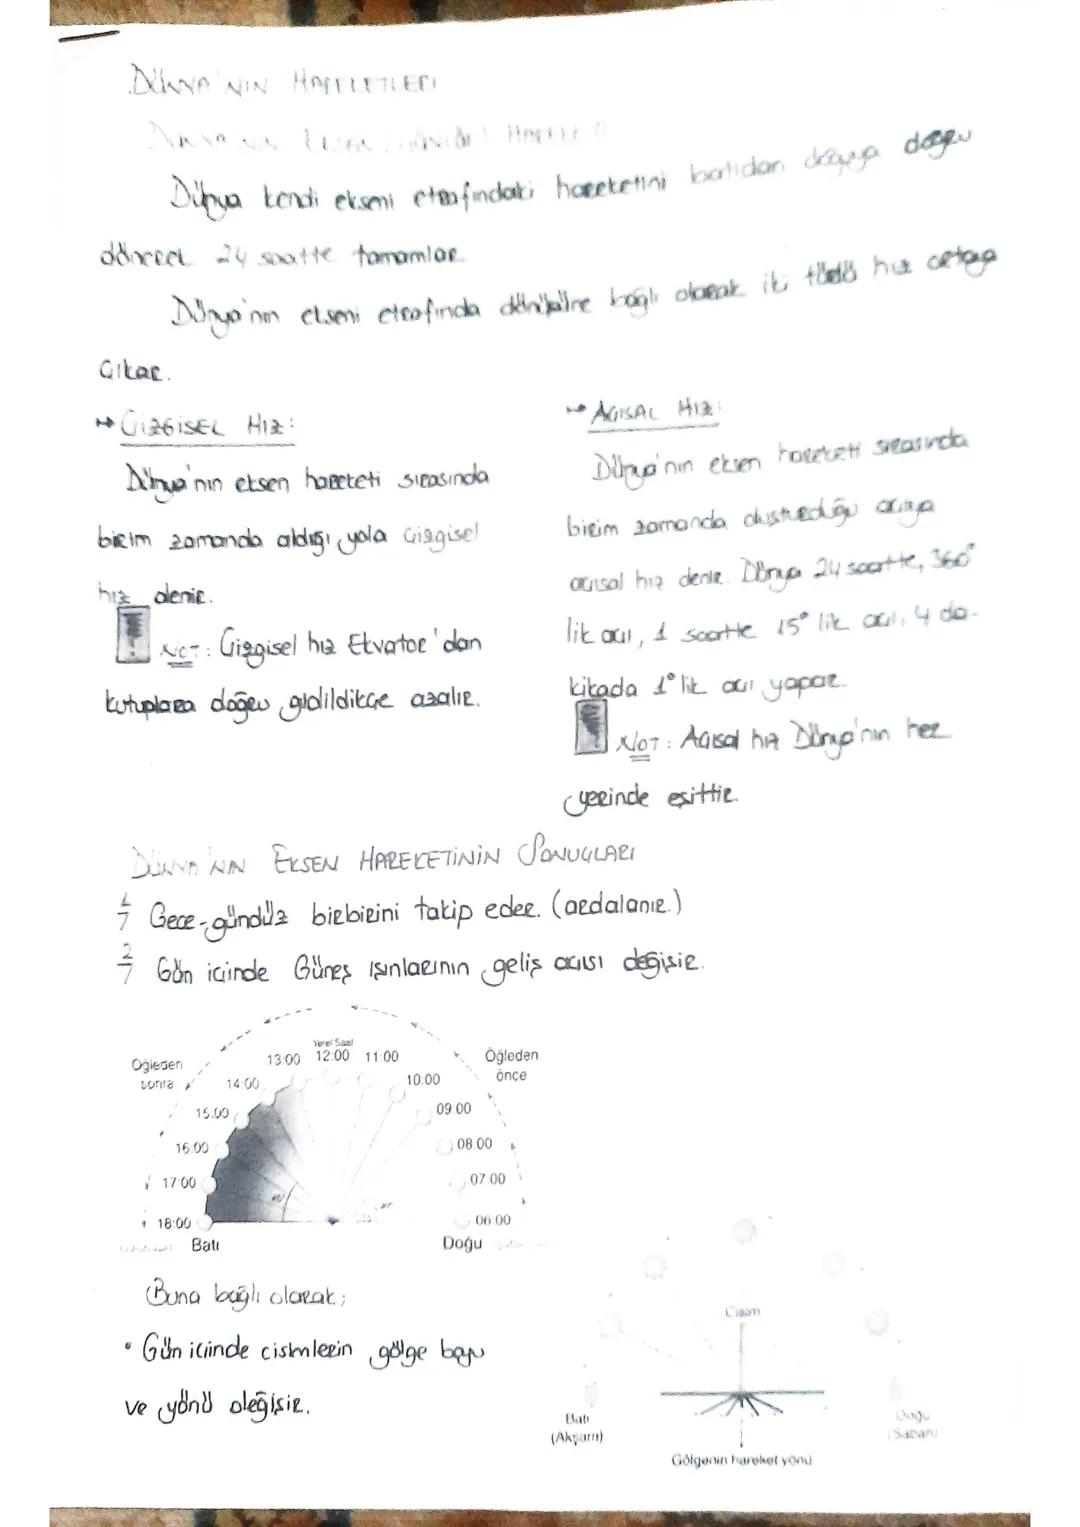 DÜNYA'NIN HAREKETLERİ
DÜNYA'NIN EKSEN HAREKETİ
Dünya kendi ekseni etrafındaki hareketini batıdan doğuya doğru
dönerek 24 saatte tamamlar.
Dünya'nın ekseni etrafında dönüşüne bağlı olarak iki türlü hız ortaya
çıkar.
→ ÇİZGİSEL HIZ:
Dünya'nın eksen hareketi sırasında
birim zamanda aldığı yola çizgisel
hız denir.
NOT: Çizgisel hız Ekvator'dan
kutuplara doğru gidildikçe azalır.
→ AÇISAL HIZ:
Dünya'nın eksen hareketi sırasında
birim zamanda oluşturduğu açıya
açısal hız denir. Dünya 24 saatte, 360°
lik açı, 1 saatte 15° lik açı, 4 da-
kikada 1° lik açı yapar.
NOT: Açısal hız Dünya'nın her
yerinde eşittir.
DÜNYA'NIN EKSEN HAREKETİNİN SONUÇLARI
1/7 Gece-gündüz birbirini takip eder. (ardalanır.)
2/7 Gün içinde Güneş ışınlarının geliş açısı değişir.
Yerel Saat
Öğleden
sonra
13:00 12:00 11:00
Öğleden
önce
14:00 10:00
15:00 09:00
16:00 08:00
17:00 07:00
18:00 06:00
Batı Doğu
Buna bağlı olarak;
• Gün içinde cisimlerin gölge boyu
ve yönü değişir.
Cisim
Batı
(Akşam)
Doğu
(Sabah)
Gölgenin hareket yönü